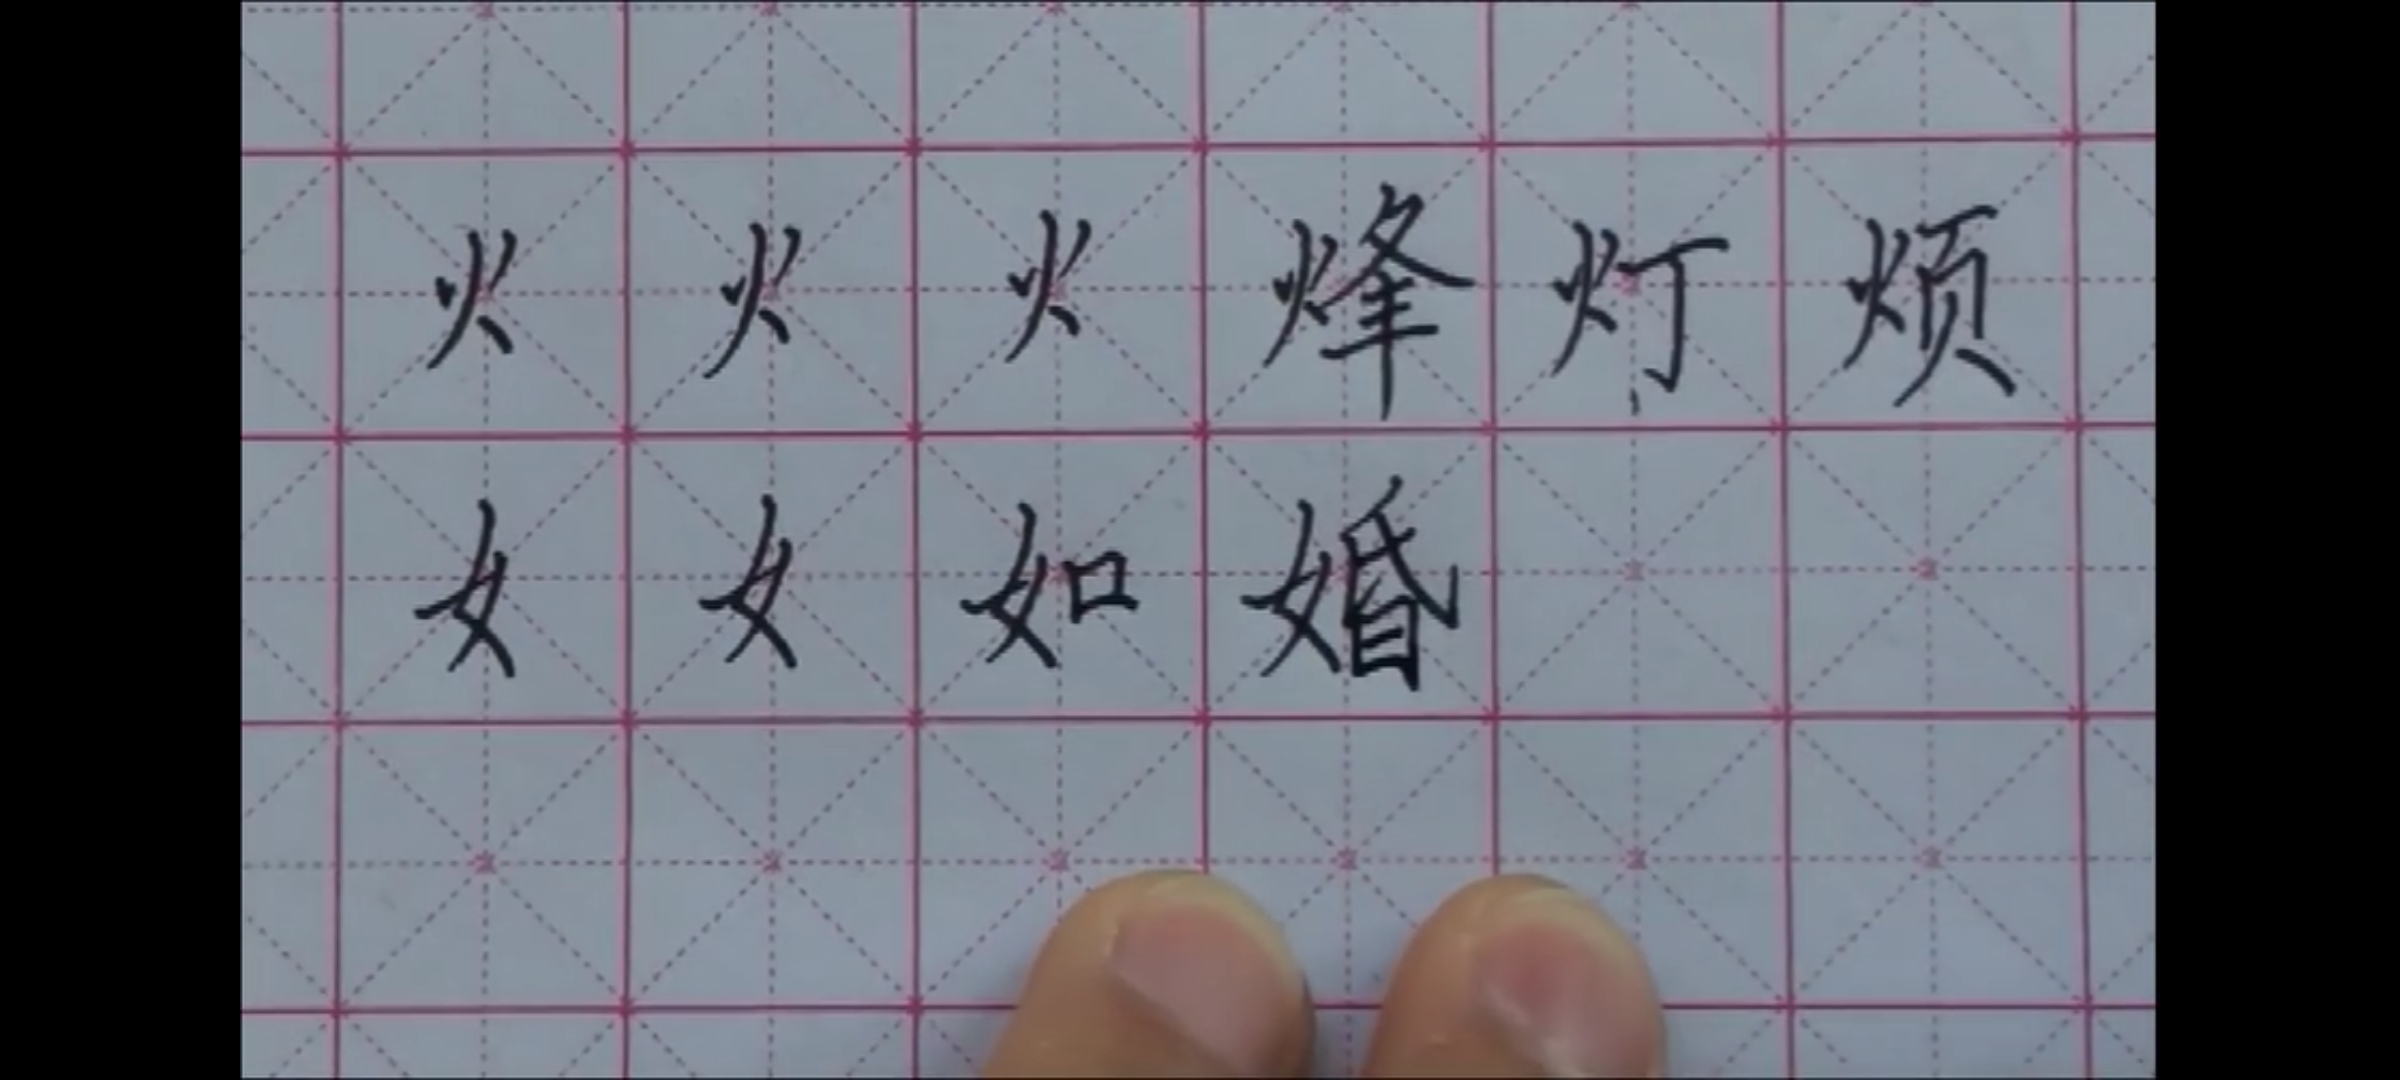 火火火烽灯烦
女女如婚